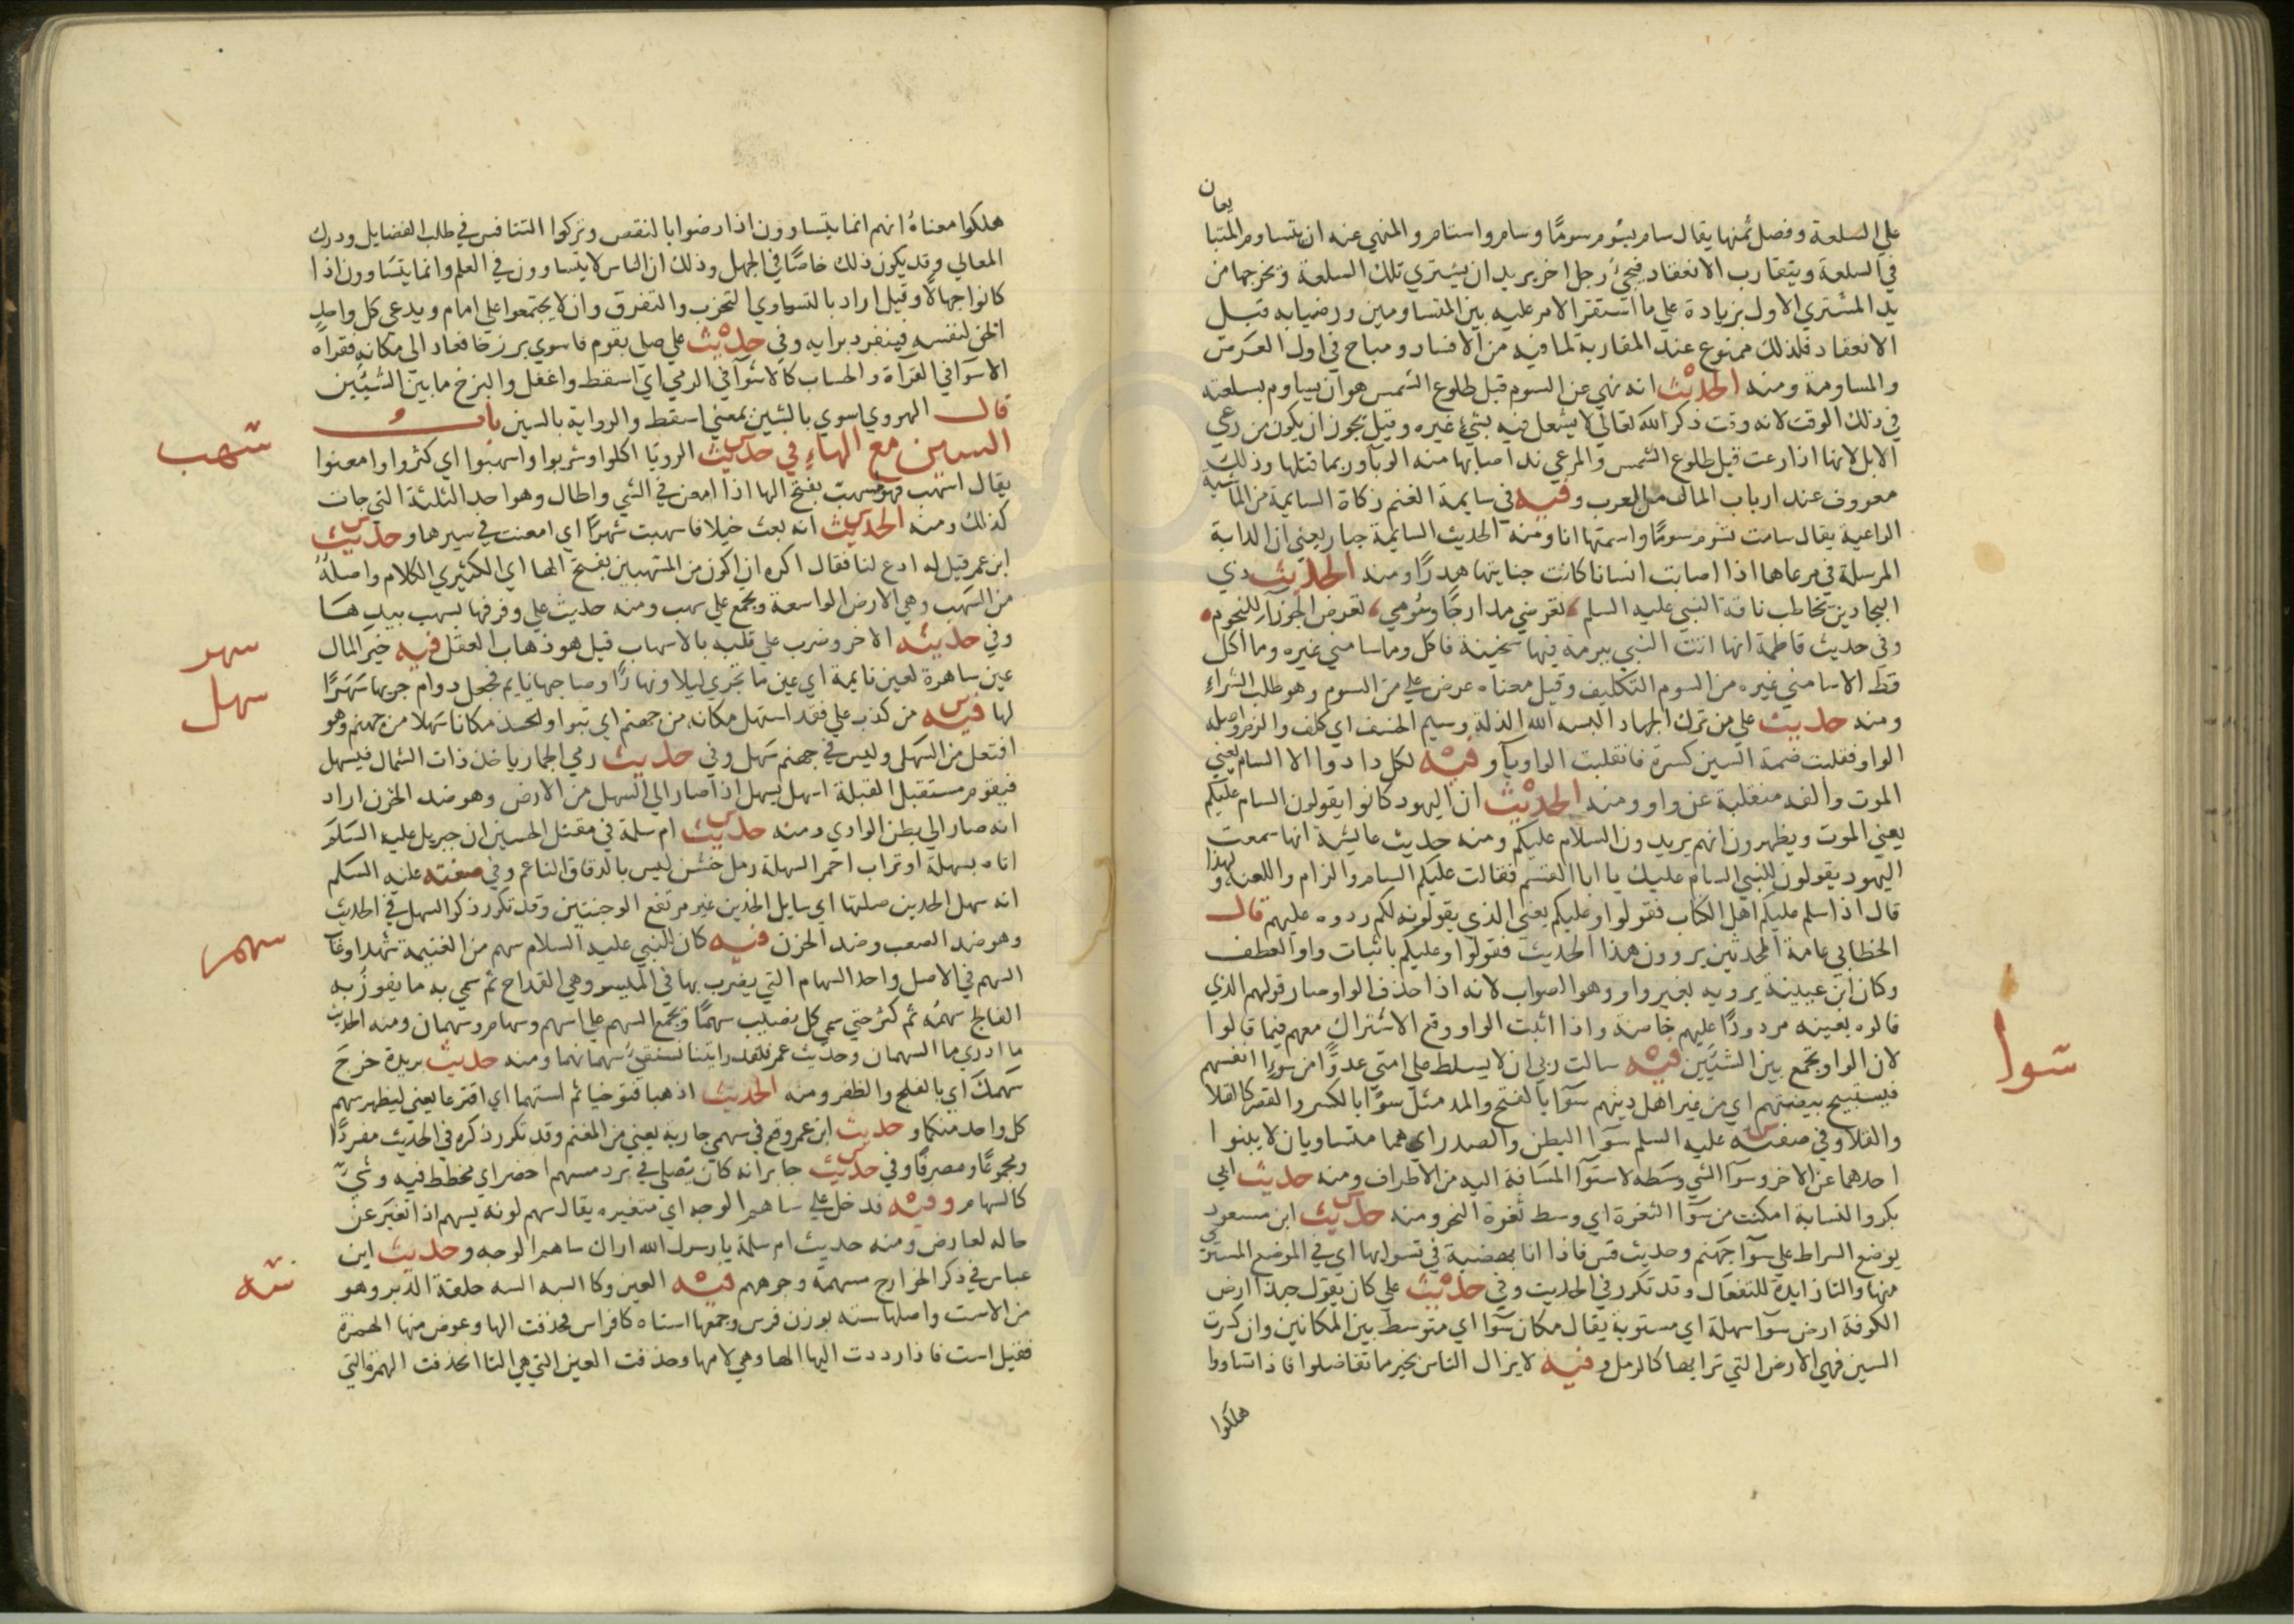 يعان
علي السلعة وفصل ثمنها يقال سام يسوم سوما وسام واستام والمنهي عنه ان يتساوم المتبا
في السلعة ويتقارب الانعقاد فيجيء رجل اخر يريد ان يشتري تلك السلعة ويخرجها من
يد المشتري الاول بزيادة علي ما استقر الامر عليه بين المتساومين ورضيا به قبل
الانعقاد فلذلك ممنوع عند المقاربة لما فيه من الافساد ومباح في اول العرض
والمساومة ومنه الحديث انه نهي عن السوم قبل طلوع الشمس هو ان يساوم بسلعته
في ذلك الوقت لانه وقت ذكر الله تعالي لا يشتغل فيه بشيء غيره وقيل يجوز ان يكون من رعي
الابل لانها اذا رعت قبل طلوع الشمس والمرعي ند اصابها منه الوبا وربما قتلها وذلك
معروف عند ارباب المال من العرب وفيه في سايمة الغنم زكاة السايمة من الماشية
الراعية يقال سامت تسوم سوما واسمتها انا ومنه الحديث السايمة جبار يعني ان الدابة
المرسلة في مرعاها اذا اصابت انسانا كانت جنايتها هدرا ومنه الحديث ذي
البجادين يخاطب ناقة النبي عليه السلم تعرضي مدارجا وسومي تعرض الجوزآء للنجوم
وفي حديث فاطمة انها اتت النبي ببرمة فيها سخينة فاكل وما سامني غيره وما اكل
قط الا سامني غيره من السوم التكليف وقيل معناه عرض علي من السوم وهو طلب الشراء
ومنه حديث علي من ترك الجهاد البسه الله الذلة وسيم الخسف اي كلف والزم واصله
الواو فقلبت ضمة السين كسرة فانقلبت الواو يآ وفيه لكل دا دوا الا السام يعني
الموت والفه منقلبة عن واو ومنه الحديث ان اليهود كانوا يقولون السام عليكم
يعني الموت ويظهرون انهم يريدون السلام عليكم ومنه حديث عايشة انها سمعت
اليهود يقولون للنبي السام عليك يا ابا القسم فقالت عليكم السام والزام واللعنة ولهذا
قال اذا سلم عليكم اهل الكتاب فقولوا وعليكم يعني الذي يقولونه لكم ردوه عليهم قال
الخطابي عامة المحدثين يروون هذا الحديث فقولوا وعليكم باثبات واو العطف
وكان ابن عيينة يرويه بغير واو وهو الصواب لانه اذا حذف الواو صار قولهم الذي
قالوه بعينه مردودا عليهم خاصة واذا اثبت الواو وقع الاشتراك معهم فيما قالوا
لان الواو تجمع بين الشيئين فيه سالت ربي ان لا يسلط علي امتي عدوا من سوء انفسهم
فيستبيح بيضتهم اي من غير اهل دينهم سوآ بالفتح والمد مثل سوا بالكسر والقصر كالقلا
والقلا وفي صفته عليه السلم سوآ البطن والصدر اي هما متساويان لا ينبوا
احدهما عن الاخر وسوآ الشي وسطه لاستوآ المسافة اليه من الاطراف ومنه حديث ابي
بكر والنسابة امكنت من سوآ الثغرة اي وسط ثغرة النحر ومنه حديث ابن مسعود
يوضع السراط علي سوآ جهنم وحديث قس فاذا انا بهضبة في تسوايها اي في الموضع المستوي
منها والتا زايدة للتفعال وقد تكرر في الحديث وفي حديث علي كان يقول حبذا ارض
الكوفة ارض سوآ سهلة اي مستوية يقال مكان سوآ اي متوسط بين المكانين وان كسرت
السين فهي الارض التي ترابها كالرمل وفيه لا يزال الناس بخير ما تفاضلوا فاذا تساووا
هلكوا
سوا
هلكوا معناه انهم انما يتساوون اذا رضوا بالنقص وتركوا التنافس في طلب الفضايل ودرك
المعالي وقد يكون ذلك خاصا في الجهل وذلك ان الناس لا يتساوون في العلم وانما يتساوون اذا
كانوا جهالا وقيل اراد بالتساوي التحزب والتفرق وان لا يجتمعوا علي امام ويدعي كل واحد
الحق لنفسه فينفرد برايه وفي حديث علي صلي بقوم فاسوي برزخا فعاد الي مكانه فقراه
الاسوآ في القرآة والحساب كالاشوآ في الرمي اي اسقط واغفل والبرزخ ما بين الشيئين
قال الهروي اسوي بالشين بمعني اسقط والرواية بالسين باب
السين مع الهاء في حديث الرويا اكلوا وشربوا واسهبوا اي كثروا وامعنوا
يقال اسهب فهو مسهب بفتح الها اذا امعن في الشي واطال وهو احد الثلثة التي جات
كذلك ومنه الحديث انه بعث خيلا فاسهبت شهرا اي امعنت في سيرها وحديث
ابن عمر قيل له ادع لنا فقال اكره ان اكون من المسهبين بفتح الها اي الكثيري الكلام واصله
من السهب وهي الارض الواسعة ويجمع علي سهب ومنه حديث علي وفرقها بسهب بيدها
وفي حديثه الاخر وضرب علي قلبه بالاسهاب قيل هو ذهاب العقل فيه خير المال
عين ساهرة لعين نايمة اي عين ما تجري ليلا ونهارا وصاحبها نايم فجعل دوام جريها سهرا
لها فيه من كذب علي فقد استهل مكانه من جهنم اي تبوا واتخذ مكانا سهلا من جهنم وهو
افتعل من السهل وليس في جهنم سهل وفي حديث رمي الجمار ياخذ ذات الشمال فيسهل
فيقوم مستقبل القبلة اسهل يسهل اذا صار الي السهل من الارض وهو ضد الحزن اراد
انه صار الي بطن الوادي ومنه حديث ام سلمة في مقتل الحسين ان جبريل عليه السلم
اتاه بسهلة او تراب احمر السهلة رمل خشن ليس بالدقاق الناعم وفي صفته عليه السلم
انه سهل الخدين صلتها اي سايل الخدين غير مرتفع الوجنتين وقد تكرر ذكر السهل في الحديث
وهو ضد الصعب وضد الحزن فيه كان للنبي عليه السلام سهم من الغنيمة شهد او غاب
السهم في الاصل واحد السهام التي يضرب بها في الميسر وهي القداح ثم سمي به ما يفوز به
الفالج سهمه ثم كثر حتي سمي كل نصيب سهما ويجمع السهم علي اسهم وسهام وسهمان ومنه الحديث
ما ادري ما السهمان وحديث عمر فلقد رايتنا نستفيء سهمانهما ومنه حديث بريدة خرج
سهمك اي بالفلج والظفر ومنه الحديث اذهبا فتوخيا ثم استهما اي اقترعا يعني ليظهر سهم
كل واحد منكما وحديث ابن عمر وقع في سهمي جارية يعني من المغنم وقد تكرر ذكره في الحديث مفردا
ومجموعا ومصرفا وفي حديث جابر انه كان يصلي في برد مسهم اخضر اي مخطط فيه وشي
كالسهام وفيه فدخل علي ساهم الوجه اي متغيره يقال سهم لونه يسهم اذا تغير عن
حاله لعارض ومنه حديث ام سلمة يا رسول الله اراك ساهم الوجه وحديث ابن
عباس في ذكر الخوارج مسهمة وجوههم فيه العين وكا السه السه حلقة الدبر وهو
من الاست واصلها سته بوزن فرس وجمعها استاه كافراس فحذفت الها وعوض منها الهمزة
فقيل است فاذا رددت اليها الها وهي لامها وحذفت العين التي هي التا انحذفت الهمزة التي
سهب
سهر
سهل
سهم
سه